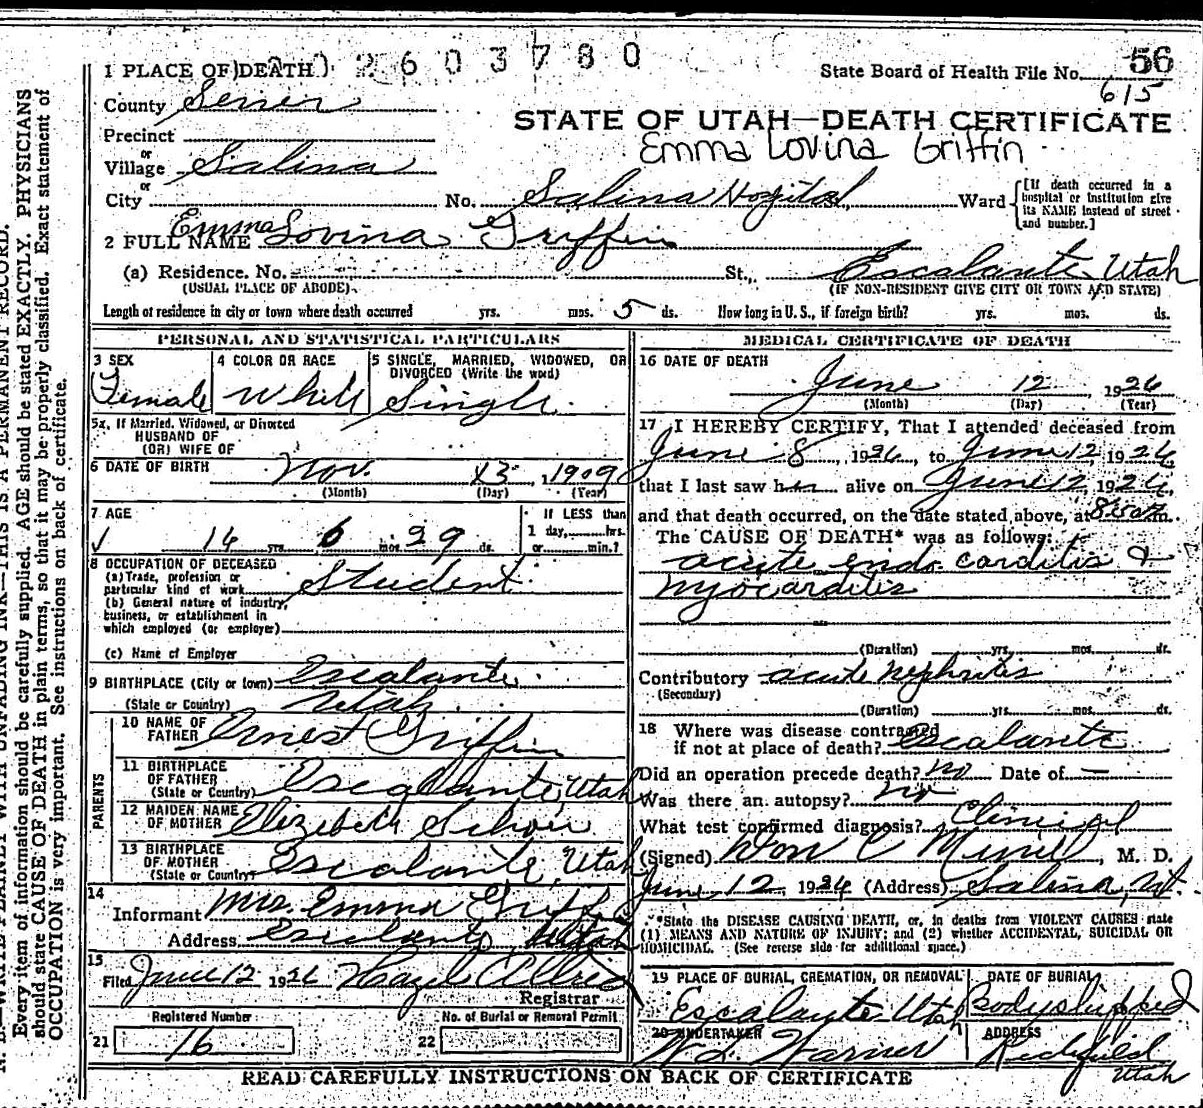 2603780
56
1 PLACE OF DEATH
State Board of Health File No.
615
County Sevier
STATE OF UTAH—DEATH CERTIFICATE
Precinct
or
Village Salina
Emma Lovina Griffin
or
City
No. Salina Hospital
Ward
[If death occurred in a hospital or institution give its NAME instead of street and number.]
2 FULL NAME Emma Lovina Griffin
(a) Residence. No. St., Escalante Utah
(USUAL PLACE OF ABODE)
(IF NON-RESIDENT GIVE CITY OR TOWN AND STATE)
Length of residence in city or town where death occurred yrs. mos. 5 ds. How long in U. S., if foreign birth? yrs. mos. ds.
PERSONAL AND STATISTICAL PARTICULARS
3 SEX
Female
4 COLOR OR RACE
White
5 SINGLE, MARRIED, WIDOWED, OR DIVORCED (Write the word)
Single
5a, If Married, Widowed, or Divorced
HUSBAND OF
(OR) WIFE OF
6 DATE OF BIRTH Nov. 13, 1909
(Month) (Day) (Year)
7 AGE
yrs. 6 mos. 29 ds.
If LESS than
1 day, hrs.
or min.?
8 OCCUPATION OF DECEASED
(a) Trade, profession or
particular kind of work Student
(b) General nature of industry,
business, or establishment in
which employed (or employer)
(c) Name of Employer
9 BIRTHPLACE (City or town) Escalante
(State or Country) Utah
PARENTS
10 NAME OF
FATHER Ernest Griffin
11 BIRTHPLACE
OF FATHER
(State or Country) Escalante, Utah
12 MAIDEN NAME
OF MOTHER Elizebeth
13 BIRTHPLACE
OF MOTHER
(State or Country) Escalante, Utah
14
Informant Mrs. Emma Griffin
Address Escalante, Utah
15
Filed June 12 192 Hazel
Registrar
Registered Number
21 16
No. of Burial or Removal Permit
22
MEDICAL CERTIFICATE OF DEATH
16 DATE OF DEATH
June 12 192
(Month) (Day) (Year)
17 I HEREBY CERTIFY, That I attended deceased from
June 8, 192, to June 12 192
that I last saw her alive on June 12, 192
and that death occurred, on the date stated above, at m.
The CAUSE OF DEATH* was as follows:
acute endo carditis &
myocarditis
(Duration) yrs. mos. ds.
Contributory acute nephritis
(Secondary)
(Duration) yrs. mos. ds.
18 Where was disease contracted
if not at place of death? Escalante
Did an operation precede death? no Date of —
Was there an autopsy? no
What test confirmed diagnosis? Clinical
(Signed) Don C M, M. D.
June 12, 192 (Address) Salina, Ut.
*State the DISEASE CAUSING DEATH, or, in deaths from VIOLENT CAUSES state
(1) MEANS AND NATURE OF INJURY; and (2) whether ACCIDENTAL, SUICIDAL OR
HOMICIDAL. (See reverse side for additional space.)
19 PLACE OF BURIAL, CREMATION, OR REMOVAL
Escalante Utah
DATE OF BURIAL
Body shipped
20 UNDERTAKER
Warner
ADDRESS
Richfield
Utah
READ CAREFULLY INSTRUCTIONS ON BACK OF CERTIFICATE
N. B.—WRITE PLAINLY WITH UNFADING INK—THIS IS A PERMANENT RECORD.
Every item of information should be carefully supplied. AGE should be stated EXACTLY. PHYSICIANS
should state CAUSE OF DEATH in plain terms, so that it may be properly classified. Exact statement of
OCCUPATION is very important. See instructions on back of certificate.